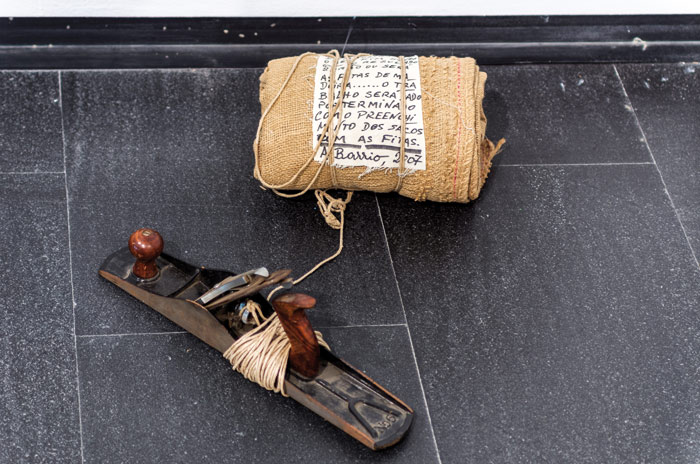 SERÁ
AS FITAS DE MA
DEIRA...... O TRA
BALHO SERÁ DADO
POR TERMINADO
COMO PREENCHI
MENTO DOS SACOS
COM AS FITAS.
A. Barrio, 2007